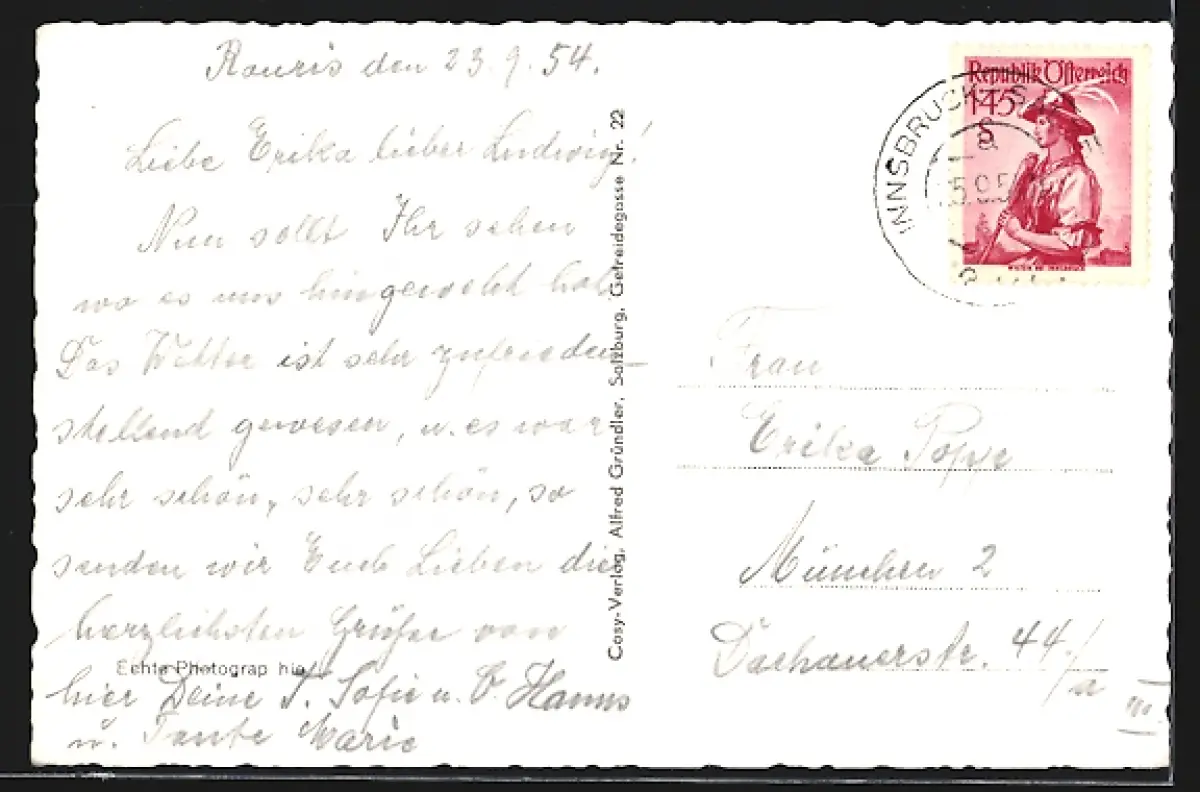 Rauris den 23.9.54.
Liebe Erika lieber Ludwig!
Nun sollt Ihr sehen
wo es uns hingeweht hat.
Das Wetter ist sehr zufrieden-
stellend gewesen, u. es war
sehr schön, sehr schön, so
senden wir Euch Lieben die
herzlichsten Grüße von
hier Deine T. Sofie u. O. Hanns
u. Tante Marie
Echte Photographie
Cosy-Verlag, Alfred Gründler, Salzburg, Getreidegasse Nr. 22
Republik Österreich
1·45
S
WILTEN BEI INNSBRUCK
INNSBRUCK
Frau
Erika Popp
München 2
Dachauerstr. 44/a
III.